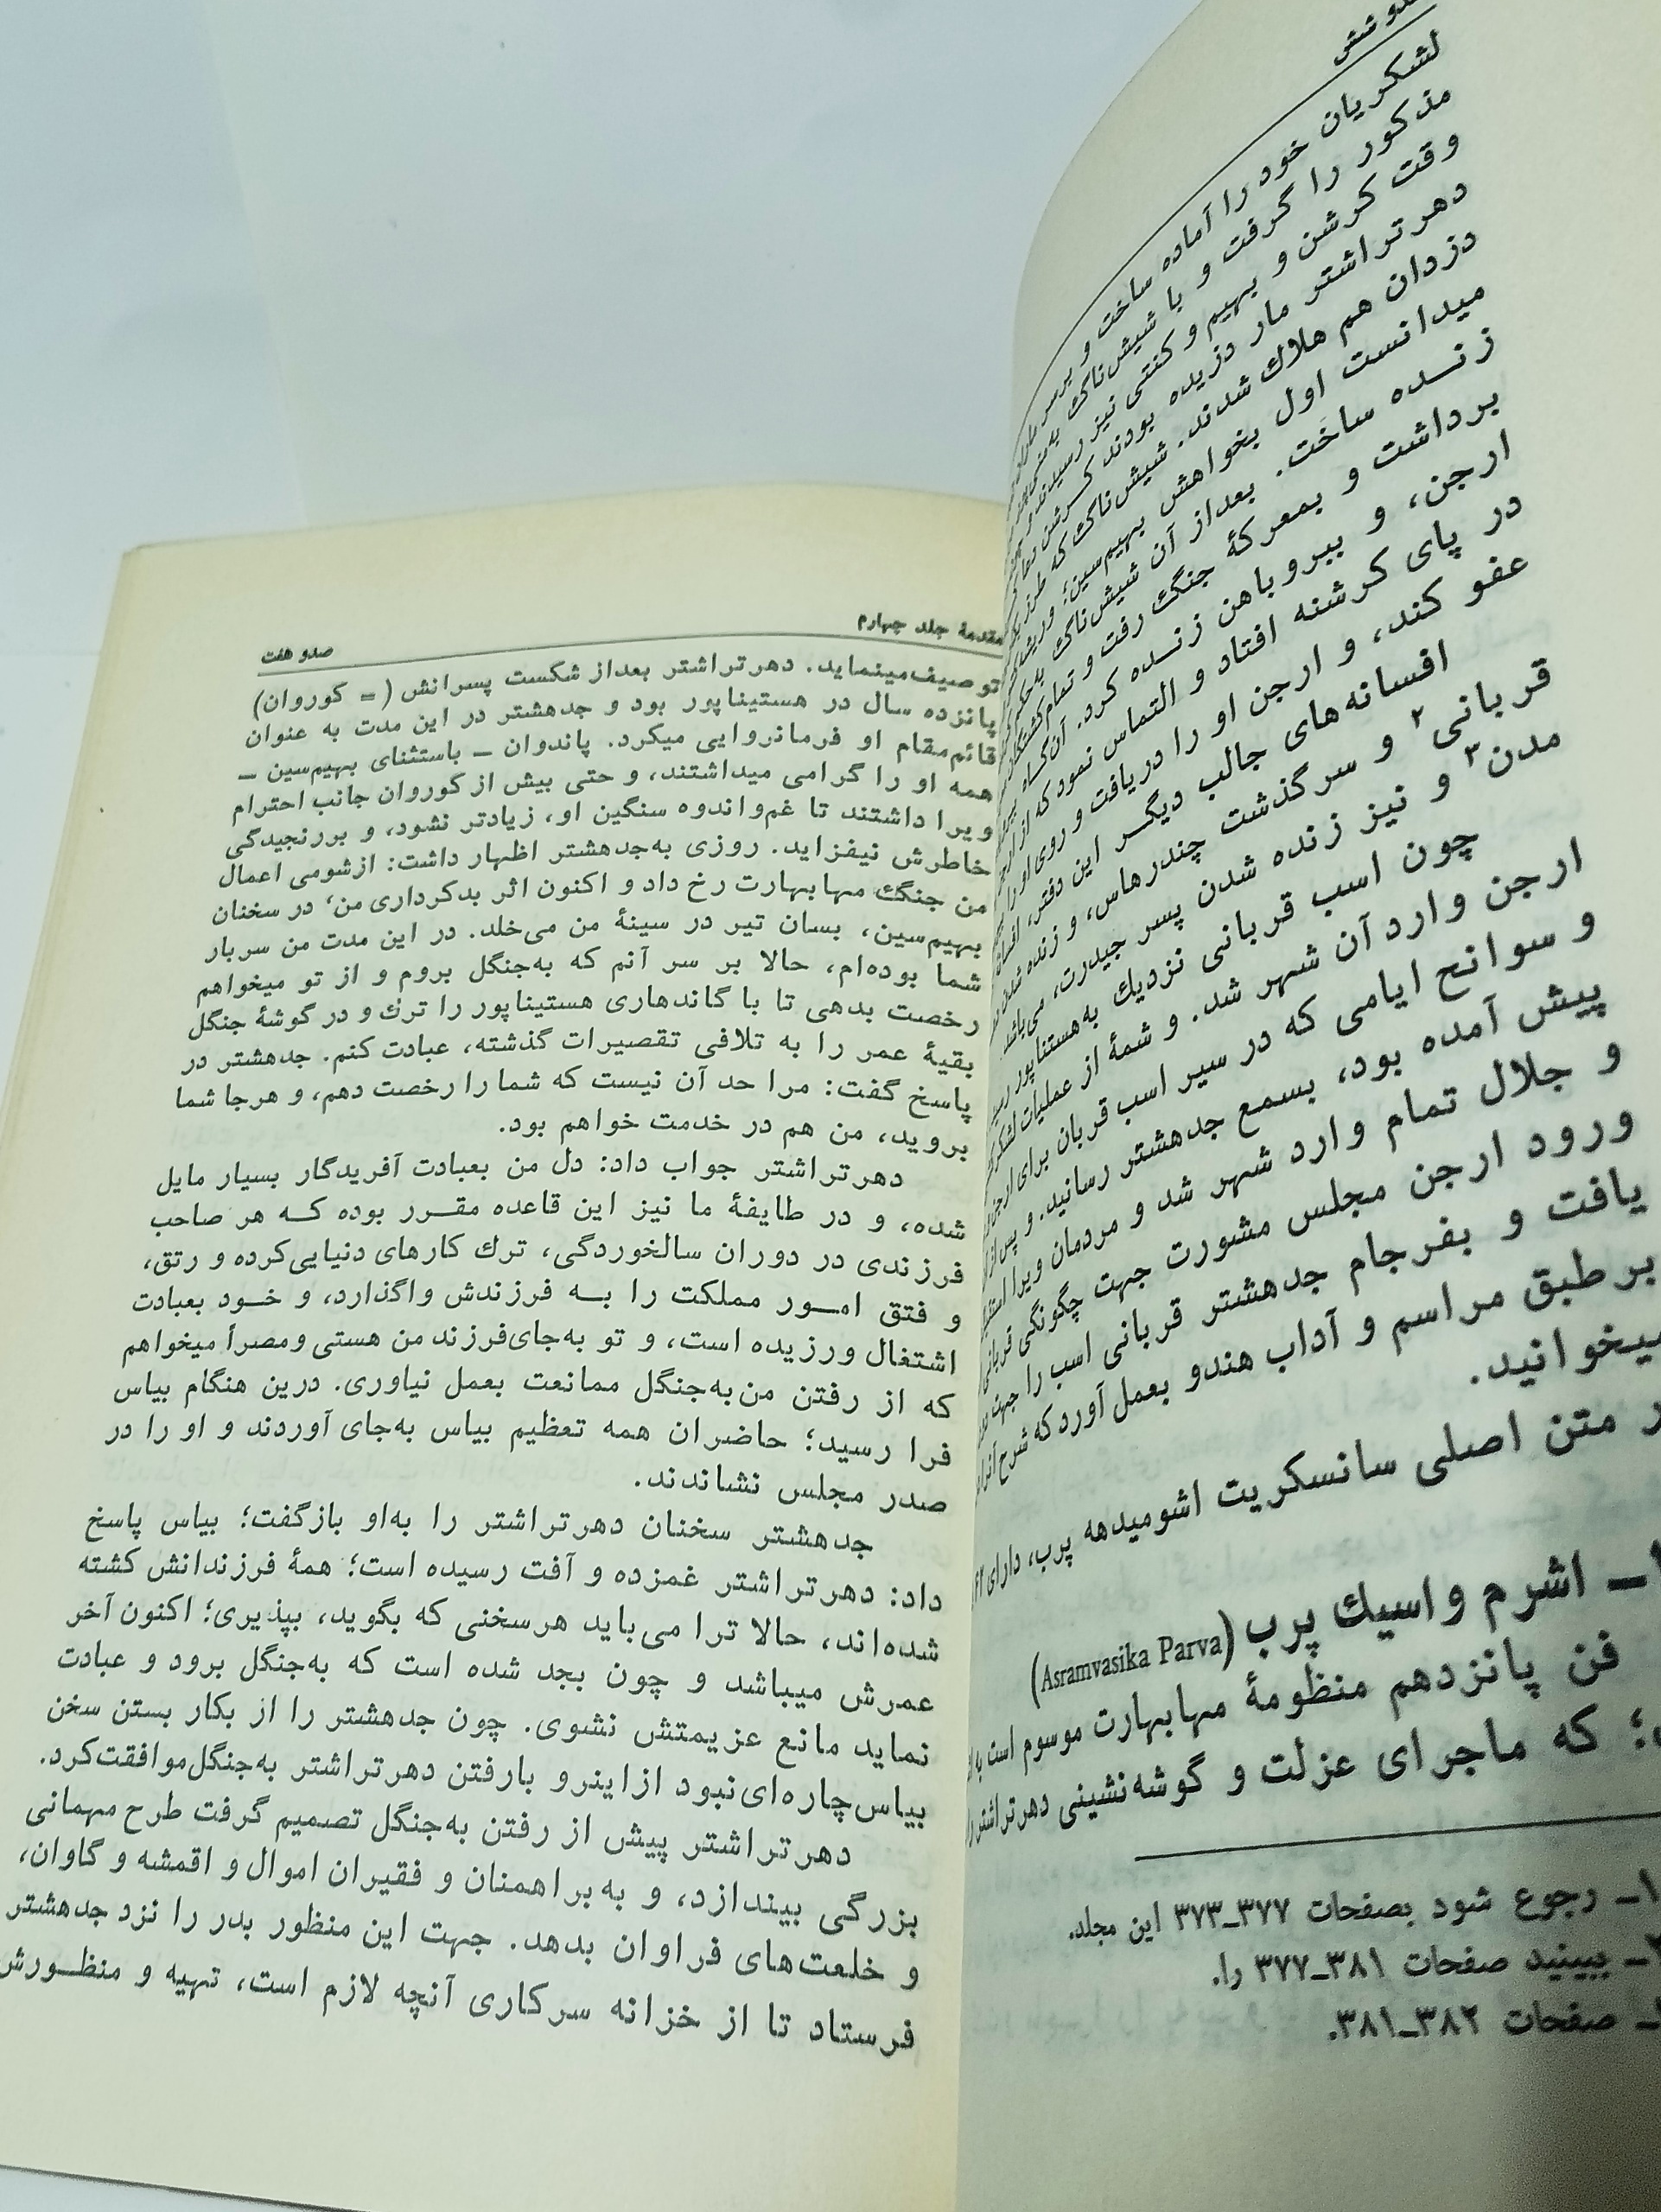 لشکریان خود را آماده ساخت و بر سر
مذکور را گرفت و با شیش‌ناگ
وقت کرشن و بهیم و کنتی نیز رسیدند
دهرتراشتر مار دزیده بودند کرشن
دزدان هم هلاك شدند. شیش‌ناگ که طرز
میدانست اول بخواهش بهیم‌سین،
زنــده ساخت. بعداز آن شیش‌ناگ
برداشت و بمعرکهٔ جنگ رفت و تمام کشتگان
ارجن، و ببروباهن زنــده کرد. آن‌گاه
در پای کرشنه افتاد و التماس نمود که از
عفو کند، و ارجن او را دریافت و روی او را
افسانه‌های جالب دیگــر این دفتر،
قربانی۲ و سرگذشت چندرهاس، و زنده شدن
مدن۳ و نیز زنده شدن پسر جیدرت، می‌باشد.
چون اسب قربانی نزدیك به هستناپور
ارجن وارد آن شهر شد. و شمهٔ از عملیات
و سوانح ایامی که در سیر اسب قربان برای ارجن
پیش آمده بود، بسمع جدهشتر رسانید. و پس از
و جلال تمام وارد شهر شد و مردمان ویرا
ورود ارجن مجلس مشورت جهت چگونگی قربانی
یافت و بفرجام جدهشتر قربانی اسب را جهت
برطبق مراسم و آداب هندو بعمل آورد که شرح
میخوانید.
متن اصلی سانسکریت اشومیدهه پرب، دارای
ـ اشرم واسیك پرب (Asramvasika Parva)
فن پانزدهم منظومهٔ مهابهارت موسوم است به
که ماجرای عزلت و گوشه‌نشینی دهرتراشتر را
۱ـ رجوع شود بصفحات ۳۷۷ـ۳۷۳ این مجلد.
ـ ببینید صفحات ۳۸۱ـ۳۷۷ را.
ـ صفحات ۳۸۲ـ۳۸۱.
مقدمهٔ جلد چهارم
صدو هفت
توصیف‌مینماید. دهرتراشتر بعداز شکست پسرانش (= کوروان)
پانزده سال در هستیناپور بود و جدهشتر در این مدت به عنوان
قائم‌مقام او فرمانروایی میکرد. پاندوان ـ باستثنای بهیم‌سین ـ
همه او را گرامی میداشتند، و حتی بیش از کوروان جانب احترام
ویرا داشتند تا غم‌واندوه سنگین او، زیادتر نشود، و بررنجیدگی
خاطرش نیفزاید. روزی به‌جدهشتر اظهار داشت: ازشومی اعمال
من جنگ مهابهارت رخ داد و اکنون اثر بدکرداری من، در سخنان
بهیم‌سین، بسان تیر در سینهٔ من می‌خلد. در این مدت من سربار
شما بوده‌ام، حالا بر سر آنم که به‌جنگل بروم و از تو میخواهم
رخصت بدهی تا با گاندهاری هستیناپور را ترك و در گوشهٔ جنگل
بقیهٔ عمر را به تلافی تقصیرات گذشته، عبادت کنم. جدهشتر در
پاسخ گفت: مرا حد آن نیست که شما را رخصت دهم، و هرجا شما
بروید، من هم در خدمت خواهم بود.
دهرتراشتر جواب داد: دل من بعبادت آفریدگار بسیار مایل
شده، و در طایفهٔ ما نیز این قاعده مقــرر بوده کــه هر صاحب
فرزندی در دوران سالخوردگی، ترك کارهای دنیایی‌کرده و رتق،
و فتق امــور مملکت را بــه فرزندش واگذارد، و خــود بعبادت
اشتغال ورزیده است، و تو به‌جای‌فرزند من هستی ومصراً میخواهم
که از رفتن من‌به‌جنگل ممانعت بعمل نیاوری. درین هنگام بیاس
فرا رسید؛ حاضران همه تعظیم بیاس به‌جای آوردند و او را در
صدر مجلس نشاندند.
جدهشتر سخنان دهرتراشتر را به‌او بازگفت؛ بیاس پاسخ
داد: دهرتراشتر غمزده و آفت رسیده است؛ همهٔ فرزندانش کشته
شده‌اند، حالا ترا می‌باید هرسخنی که بگوید، بپذیری؛ اکنون آخر
عمرش میباشد و چون بجد شده است که به‌جنگل برود و عبادت
نماید مانع عزیمتش نشوی. چون جدهشتر را از بکار بستن سخن
بیاس‌چاره‌ای‌نبود ازاینرو بارفتن دهرتراشتر به‌جنگل‌موافقت‌کرد.
دهرتراشتر پیش از رفتن به‌جنگل تصمیم گرفت طرح مهمانی
بزرگی بیندازد، و به براهمنان و فقیران اموال و اقمشه و گاوان،
و خلعت‌های فراوان بدهد. جهت این منظور بدر را نزد جدهشتر
فرستاد تا از خزانه سرکاری آنچه لازم است، تهیه و منظــورش